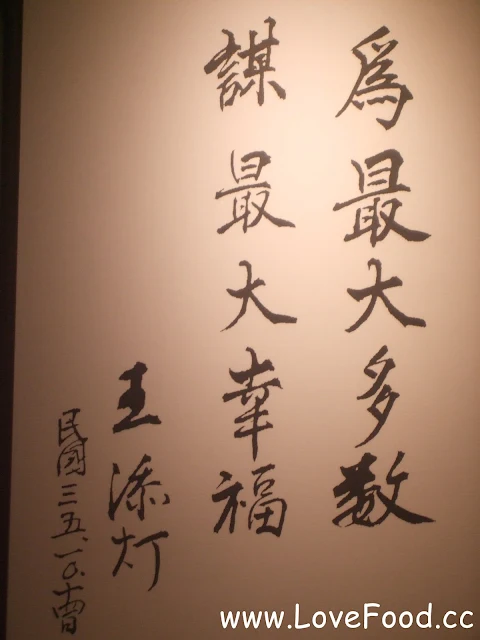 爲最大多数
謀最大幸福
王添灯
民國三五、一〇、十四日
www.LoveFood.cc